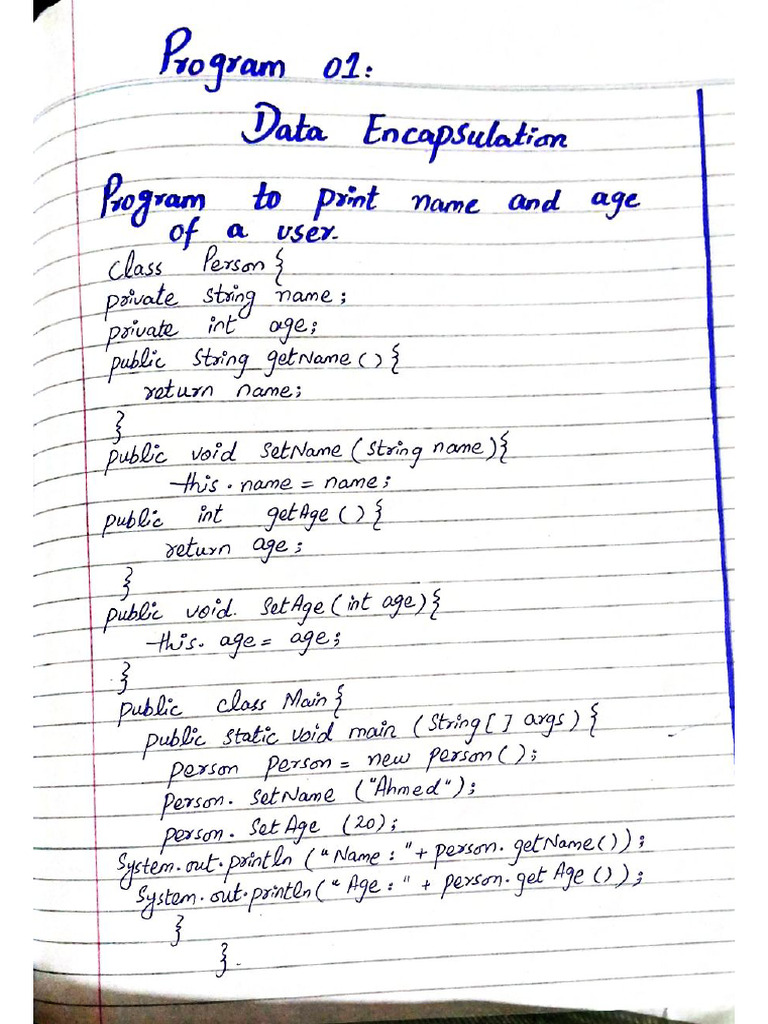 Program 01:
Data Encapsulation
Program to print name and age
of a user.
class Person {
private string name;
private int age;
public string getName() {
return name;
}
public void setName (string name) {
this.name = name;
public int getAge () {
return age;
}
public void. setAge (int age) {
this. age = age;
}
public class Main {
public static void main (string [ ] args) {
person person = new person ();
person. setName ("Ahmed");
person. setAge (20);
System.out.println ("Name: "+ person.getName());
System.out.println ("Age: " + person.get Age ());
}
}.